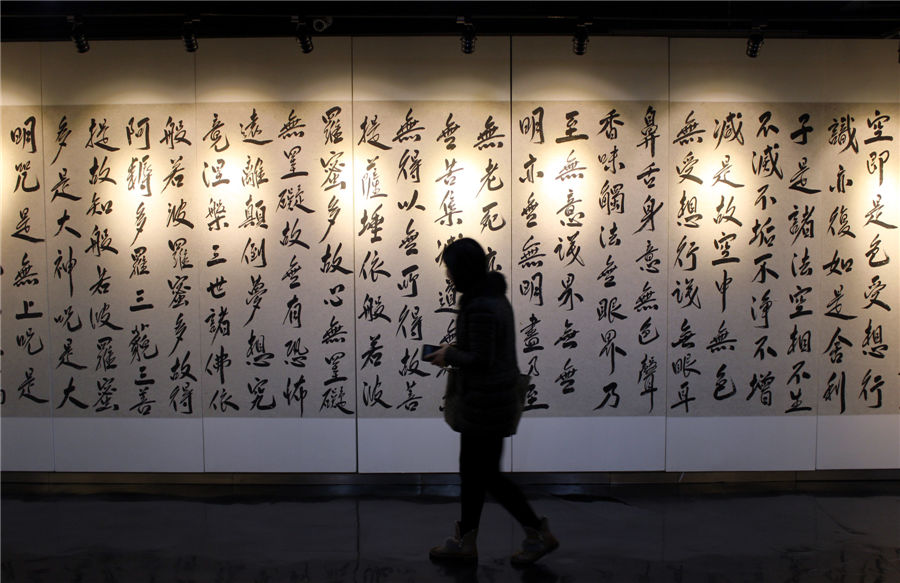 空即是色受想行
識亦復如是舍利
子是諸法空相不生
不滅不垢不淨不增
減是故空中無色
無受想行識無眼耳
鼻舌身意無色聲
香味觸法無眼界乃
至無意識界無無
明亦無無明盡乃至
無老死亦
無苦集滅道
無得以無所得故菩
提薩埵依般若波
羅蜜多故心無罣礙
無罣礙故無有恐怖
遠離顛倒夢想究
竟涅槃三世諸佛依
般若波羅蜜多故得
阿耨多羅三藐三菩
提故知般若波羅蜜
多是大神咒是大
明咒是無上咒是